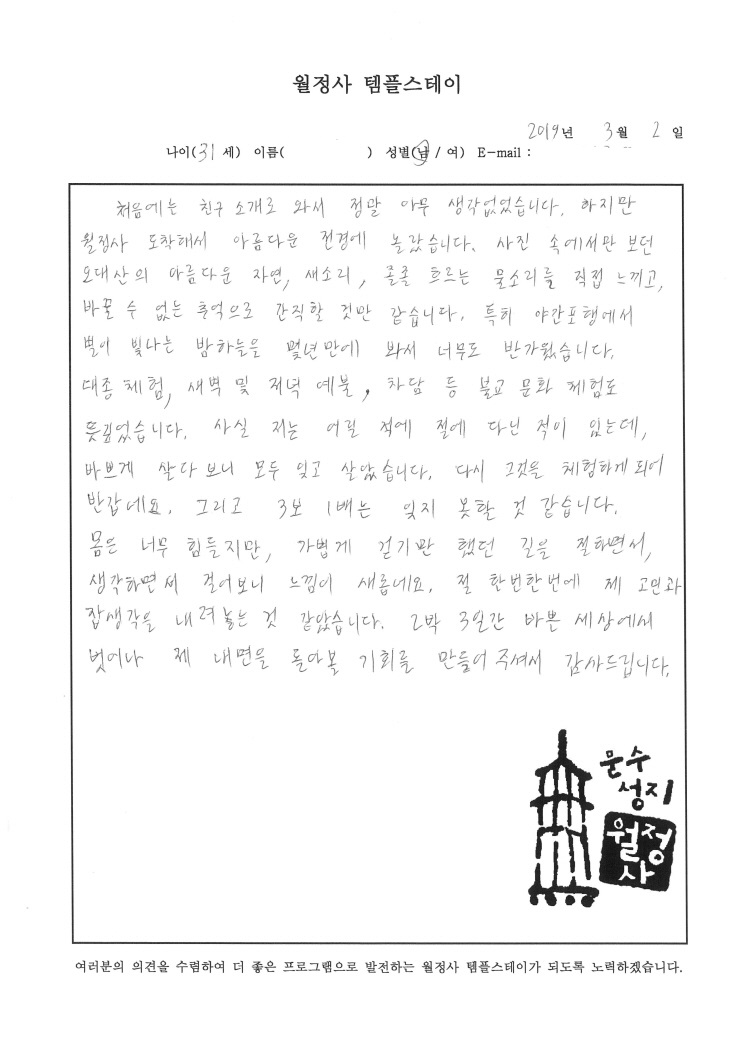 월정사 템플스테이
2019년 3월 2일
나이(31세) 이름( ) 성별(남/여) E-mail :
처음에는 친구 소개로 와서 정말 아무 생각없었습니다. 하지만
월정사 도착해서 아름다운 전경에 놀랐습니다. 사진 속에서만 보던
오대산의 아름다운 자연, 새소리, 졸졸 흐르는 물소리를 직접 느끼고,
바꿀 수 없는 추억으로 간직할 것만 같습니다. 특히 야간포행에서
별이 빛나는 밤하늘을 몇년만에 봐서 너무도 반가웠습니다.
대종 체험, 새벽 및 저녁 예불, 차담 등 불교 문화 체험도
뜻깊었습니다. 사실 저는 어릴 적에 절에 다닌 적이 있는데,
바쁘게 살다보니 모두 잊고 살았습니다. 다시 그것을 체험하게 되어
반갑네요. 그리고 3보 1배는 잊지 못할 것 같습니다.
몸은 너무 힘들지만, 가볍게 걷기만 했던 길을 절하면서,
생각하면서 걸어보니 느낌이 새롭네요. 절 한번한번에 제 고민과
잡생각을 내려놓는 것 같았습니다. 2박 3일간 바쁜 세상에서
벗어나 제 내면을 돌아볼 기회를 만들어 주셔서 감사드립니다.
문수
성지
월정
사
여러분의 의견을 수렴하여 더 좋은 프로그램으로 발전하는 월정사 템플스테이가 되도록 노력하겠습니다.